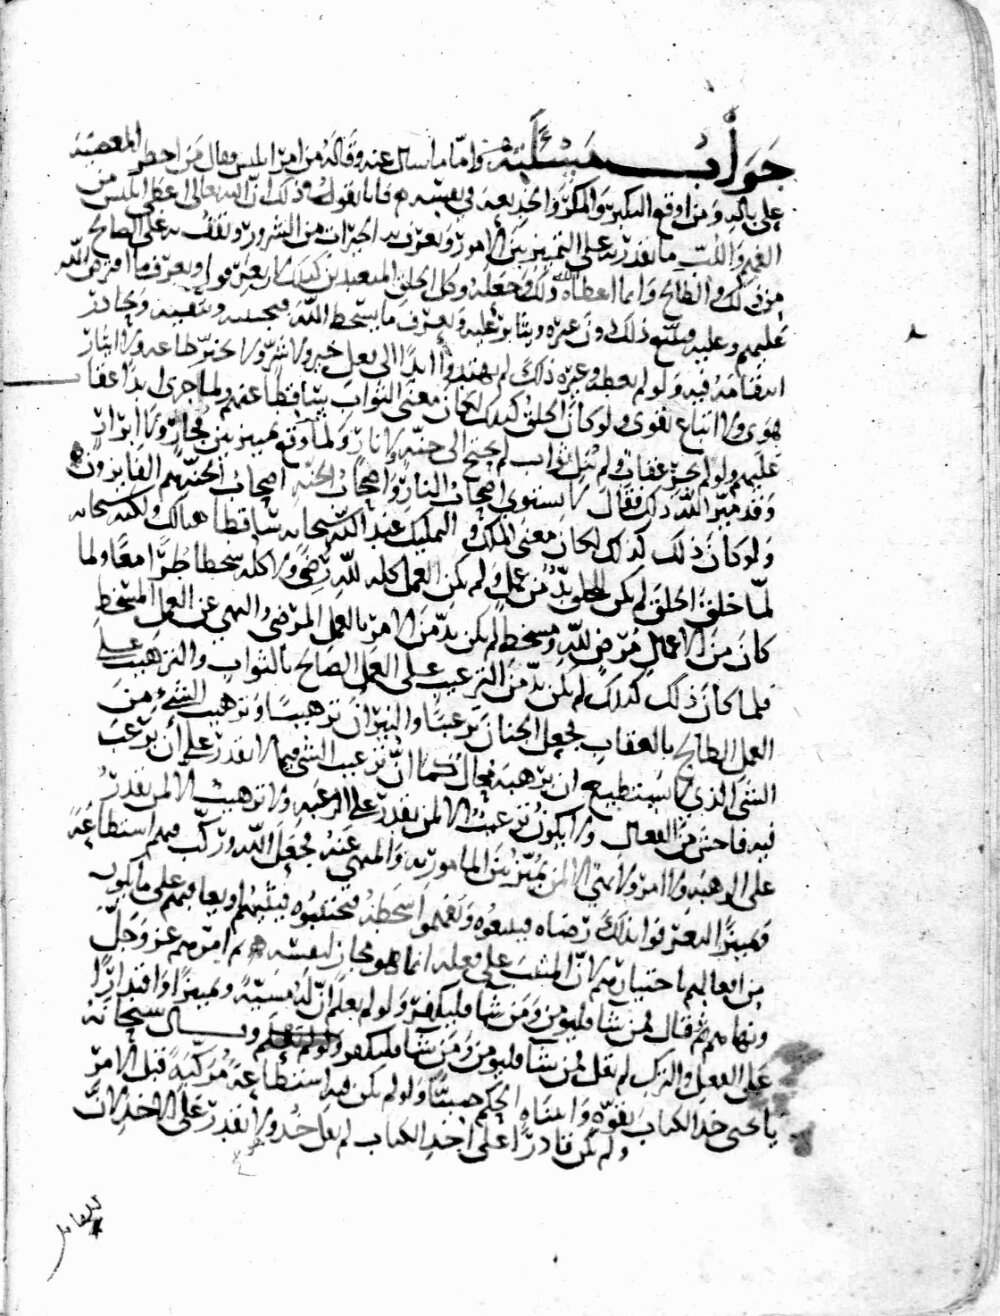 جواب مسئلته واما ما سال عنه وقاله من امر ابليس وقال من اخطر المعصية
على باله ومن اوقع التكبر والمكر والخديعة في نفسه فانا نقول في ذلك ان الله تعالى اعطى ابليس من
الفهم واللب ما يقدر به على التمييز بين الامور ويعرف به الخيرات من الشرور ويقف به على الصالح
من ذلك والطالح وانما اعطاه الله ذلك وجعله وكل الخلق المتعبدين كذلك لان يعرفوا ويعرف ما افترض الله
عليهم وعليه فيتبع ذلك دون غيره ويثابر عليه ويعرف ما يسخط الله فيجتنبه ويتقيه ويحاذر
انتقامه فيه ولو لم يعطه وغيره ذلك لم يهتدوا ابدا الى فعل خير ولا شر ولا تخير طاعه ولا ايثار
هوى ولا اتباع تقوى ولو كان الخلق كذلك لكان معنى الثواب ساقطا عنهم ولما جرى ابدا عقاب
عليهم ولو لم يجز عقاب ولم ينل ثواب لم يحتج الى جنه ولا نار ولما وقع تمييز بين فجار ولا ابرار
وقد ميز الله ذلك فقال لا يستوي اصحاب النار واصحاب الجنه اصحاب الجنة هم الفايزون
ولو كان ذلك كذلك لكان معنى الملك والتمليك عند الله سبحانه ساقطا هنالك ولكنه سبحانه
لما خلق الخلق لم يكن للخلق بد من عمل ولم يكن العمل كله لله رضى ولا كله سخطا طرا معا ولما
كان من الاعمال مرض لله ومسخط لم يكن بد من الامر بالعمل المرضي والنهي عن العمل المسخط
فلما كان ذلك كذلك لم يكن بد من الترغيب على العمل الصالح بالثواب والترهيب على
العمل الطالح بالعقاب فجعل الجنان ترغيبا والنيران ترهيبا وترهيب الشيء من
الشي الذي لا يستطيع ان يرهبه محال كما ان ترغيب الشي فيما لا يقدر على ان يرغب
فيه فاحش من الفعال ولا يكون ترغيب الا لمن يقدر على الرغبه ولا ترهيب الا لمن يقدر
على الرهبه ولا امر ولا نهي الا لمن يميز بين المامور به والمنهي عنه فجعل الله وركب فيهم استطاعة
وتمييزا ليعرفوا بذلك رضاه فيتبعوه ويفهموا اسخاطه فيجتنبوه فيثيبهم او يعاقبهم على ما يكون
من افعالهم باختيارهم لان المثيب على فعله انما هو مجاز لنفسه ثم امرهم عز وجل
ونهاهم ثم قال فمن شا فليومن ومن شا فليكفر ولو لم يعلم ان له مشية وتمييزا واقتدارا
على الفعل والترك لم يقل فمن شا فليومن ومن شا فليكفر وقال سبحانه
يا يحيى خذ الكتاب بقوة واتيناه الحكم صبيا ولو لم يكن فيه استطاعة مركبة قبل الامر
ولم يكن قادرا على اخذ الكتاب لم يقل خذ ولا يقدر على الاخذ لان